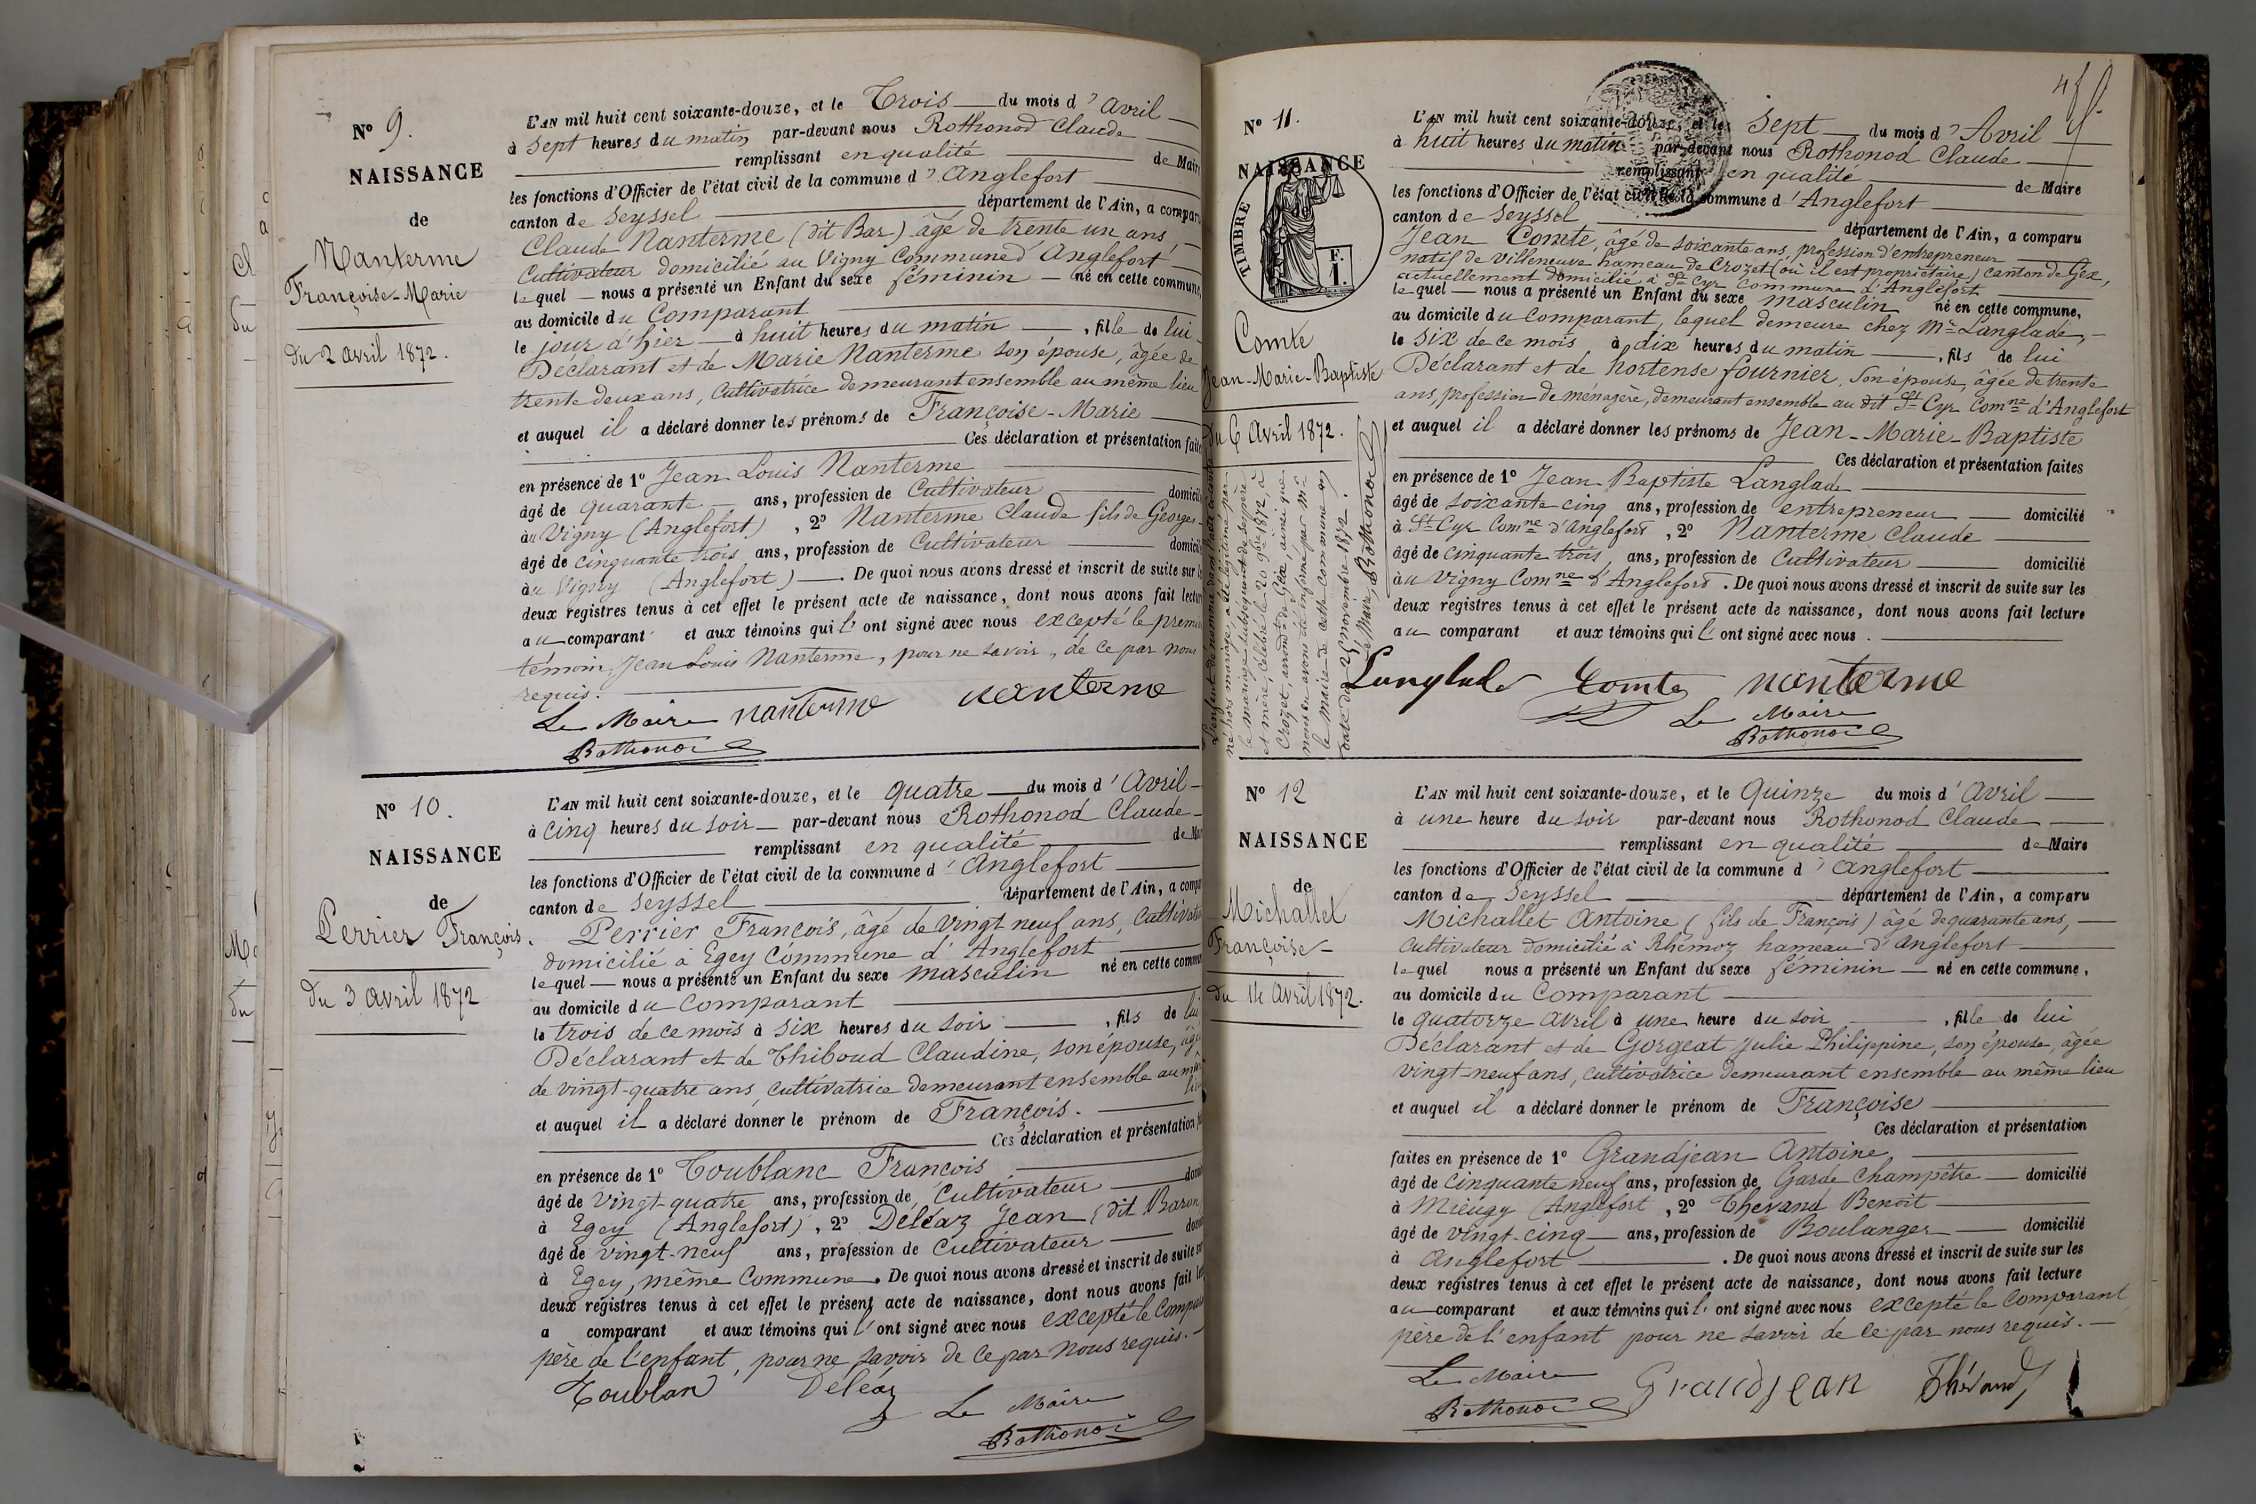 N° 9.
NAISSANCE
de
Nanterme
Françoise-Marie
du 2 avril 1872.
L'AN mil huit cent soixante-douze, et le Trois du mois d'avril
à sept heures du matin par-devant nous Rothonod Claude
remplissant en qualité de Maire
les fonctions d'Officier de l'état civil de la commune d'Anglefort
canton de Seyssel département de l'Ain, a comparu
Claude Nanterme (dit Bar) âgé de trente un ans,
Cultivateur domicilié au Vigny Commune d'Anglefort
lequel nous a présenté un Enfant du sexe féminin né en cette commune,
au domicile du Comparant
le jour d'hier à huit heures du matin, fille de lui
Déclarant et de Marie Nanterme son épouse, âgée de
trente deux ans, Cultivatrice demeurant ensemble au même lieu
et auquel il a déclaré donner les prénoms de Françoise-Marie
Ces déclaration et présentation faites
en présence de 1° Jean Louis Nanterme
âgé de quarante ans, profession de Cultivateur domicilié
au Vigny (Anglefort), 2° Nanterme Claude fils de Georges
âgé de cinquante trois ans, profession de Cultivateur domicilié
au Vigny (Anglefort). De quoi nous avons dressé et inscrit de suite sur les
deux registres tenus à cet effet le présent acte de naissance, dont nous avons fait lecture
au comparant et aux témoins qui l'ont signé avec nous excepté le premier
témoin Jean Louis Nanterme, pour ne savoir, de ce par nous
requis.
Le Maire nanterme nanterme
Rothonod
N° 10.
NAISSANCE
de
Perrier François.
du 3 avril 1872
L'AN mil huit cent soixante-douze, et le quatre du mois d'Avril
à cinq heures du soir par-devant nous Rothonod Claude
remplissant en qualité de Maire
les fonctions d'Officier de l'état civil de la commune d'Anglefort
canton de Seyssel département de l'Ain, a comparu
Perrier François, âgé de vingt neuf ans, Cultivateur
domicilié à Egey Commune d'Anglefort
lequel nous a présenté un Enfant du sexe masculin né en cette commune
au domicile du Comparant
le trois de ce mois à six heures du soir, fils de lui
Déclarant et de Thiboud Claudine, son épouse, âgée
de vingt-quatre ans, cultivatrice demeurant ensemble au même
lieu
et auquel il a déclaré donner le prénom de François.
Ces déclaration et présentation
en présence de 1° Toublanc François
âgé de vingt-quatre ans, profession de Cultivateur
à Egey (Anglefort), 2° Déléaz Jean (dit Baron)
âgé de vingt-neuf ans, profession de Cultivateur
à Egey, même Commune. De quoi nous avons dressé et inscrit de suite sur
deux registres tenus à cet effet le présent acte de naissance, dont nous avons fait
a comparant et aux témoins qui l'ont signé avec nous excepté le Comparant
père de l'enfant, pour ne savoir de ce par nous requis.
Toublan Déléaz Le Maire
Rothonod
N° 11.
NAISSANCE
de
TIMBRE
F.
1.
Comte
Jean-Marie-Baptiste
du 6 Avril 1872.
né hors mariage, a été légitimé par
le mariage subséquent de ses père
et mère, célébré le 20 9bre 1872, à
Crozet, arrondt de Gex, ainsi que
nous en avons été informé par Mr
le Maire de cette commune en
date du 25 novembre 1872.
Le Maire, Rothonod
L'AN mil huit cent soixante-douze, et le sept du mois d'Avril
à huit heures du matin par-devant nous Rothonod Claude
remplissant en qualité de Maire
les fonctions d'Officier de l'état civil de la commune d'Anglefort
canton de Seyssel département de l'Ain, a comparu
Jean Comte, âgé de soixante ans, profession d'entrepreneur
natif de Villeneuve hameau de Crozet (où il est propriétaire) canton de Gex,
actuellement domicilié à St Cyr Commune d'Anglefort
lequel nous a présenté un Enfant du sexe masculin né en cette commune,
au domicile du comparant, lequel demeure chez Mr Langlade,
le six de ce mois à dix heures du matin, fils de lui
Déclarant et de hortense fournier, son épouse, âgée de trente
ans, profession de ménagère, demeurant ensemble au dit St Cyr Comne d'Anglefort
et auquel il a déclaré donner les prénoms de Jean-Marie-Baptiste
Ces déclaration et présentation faites
en présence de 1° Jean Baptiste Langlade
âgé de soixante cinq ans, profession de entrepreneur domicilié
à St Cyr Comne d'Anglefort, 2° Nanterme Claude
âgé de cinquante trois ans, profession de Cultivateur domicilié
au Vigny Comne d'Anglefort. De quoi nous avons dressé et inscrit de suite sur les
deux registres tenus à cet effet le présent acte de naissance, dont nous avons fait lecture
au comparant et aux témoins qui l'ont signé avec nous.
Langlade Comte nanterme
Le Maire
Rothonod
N° 12
NAISSANCE
de
Michallet
Françoise
du 14 Avril 1872.
L'AN mil huit cent soixante-douze, et le Quinze du mois d'Avril
à une heure du soir par-devant nous Rothonod Claude
remplissant en qualité de Maire
les fonctions d'Officier de l'état civil de la commune d'Anglefort
canton de Seyssel département de l'Ain, a comparu
Michallet Antoine (fils de François) âgé de quarante ans,
Cultivateur domicilié à Rhémoz hameau d'Anglefort
lequel nous a présenté un Enfant du sexe féminin né en cette commune,
au domicile du Comparant
le quatorze avril à une heure du soir, fille de lui
Déclarant et de Gorgeat Julie Philippine, son épouse, âgée
vingt-neuf ans, cultivatrice demeurant ensemble au même lieu
et auquel il a déclaré donner le prénom de Françoise
Ces déclaration et présentation
faites en présence de 1° Grandjean Antoine
âgé de cinquante neuf ans, profession de Garde champêtre domicilié
à Mieugy (Anglefort, 2° Thevand Benoit
âgé de vingt-cinq ans, profession de Boulanger domicilié
à Anglefort. De quoi nous avons dressé et inscrit de suite sur les
deux registres tenus à cet effet le présent acte de naissance, dont nous avons fait lecture
au comparant et aux témoins qui l'ont signé avec nous excepté le Comparant
père de l'enfant pour ne savoir de ce par nous requis.
Le Maire Grandjean Thévand
Rothonod